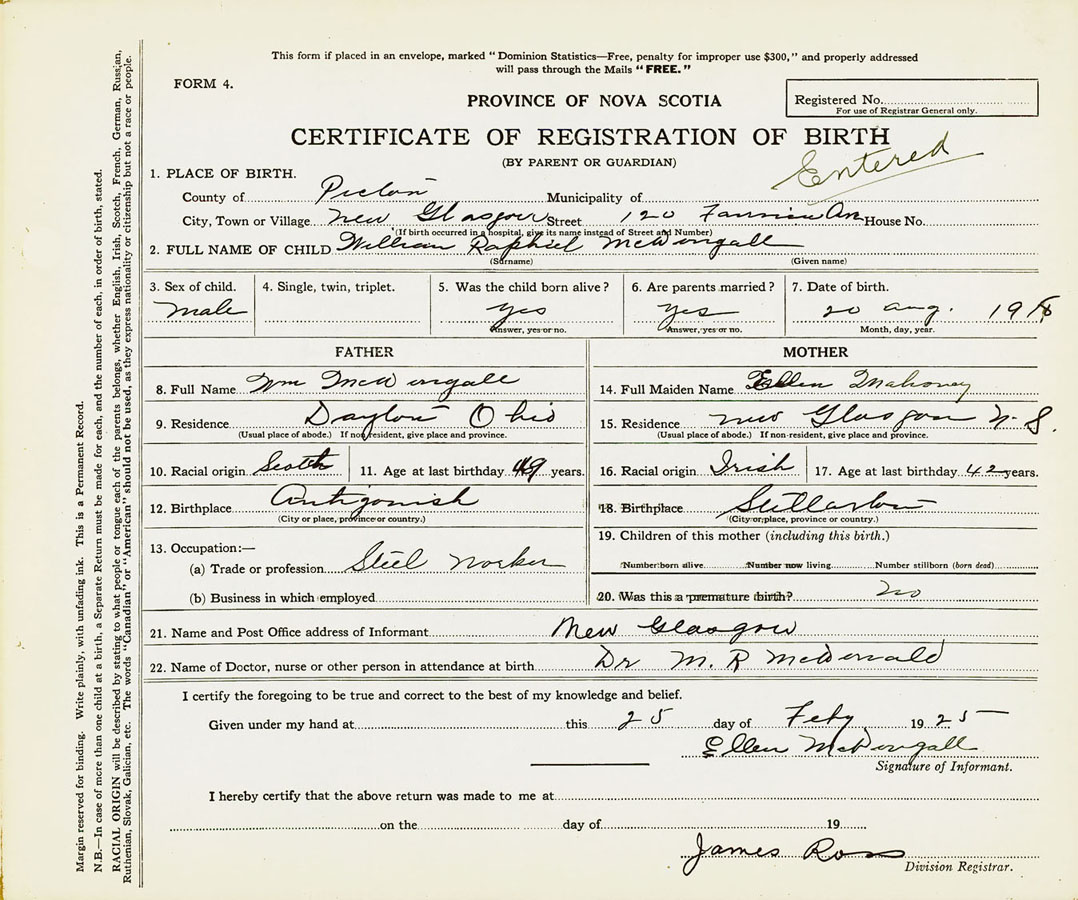 This form if placed in an envelope, marked “ Dominion Statistics—Free, penalty for improper use $300,” and properly addressed
will pass through the Mails “ FREE. ”
FORM 4.
PROVINCE OF NOVA SCOTIA
Registered No.
For use of Registrar General only.
CERTIFICATE OF REGISTRATION OF BIRTH
(BY PARENT OR GUARDIAN)
Entered
1. PLACE OF BIRTH.
County of Pictou Municipality of
City, Town or Village New Glasgow Street 120 House No.
(If birth occurred in a hospital, give its name instead of Street and Number)
2. FULL NAME OF CHILD William Raphiel McDougall
(Surname) (Given name)
3. Sex of child. 4. Single, twin, triplet. 5. Was the child born alive? 6. Are parents married? 7. Date of birth.
male yes yes 20 Aug. 191
Answer, yes or no. Answer, yes or no. Month, day, year.
FATHER MOTHER
8. Full Name Wm McDougall 14. Full Maiden Name Ellen Mahoney
9. Residence Dayton Ohio 15. Residence New Glasgow N. S.
(Usual place of abode.) If not resident, give place and province. (Usual place of abode.) If non-resident, give place and province.
10. Racial origin Scotch 11. Age at last birthday 49 years. 16. Racial origin Irish 17. Age at last birthday 42 years.
12. Birthplace Antigonish 18. Birthplace Stellarton
(City or place, province or country.) (City or place, province or country.)
13. Occupation:— 19. Children of this mother (including this birth.)
(a) Trade or profession Steel Worker Number born alive Number now living Number stillborn (born dead)
(b) Business in which employed 20. Was this a premature birth? no
21. Name and Post Office address of Informant New Glasgow
22. Name of Doctor, nurse or other person in attendance at birth Dr M. R McDonald
I certify the foregoing to be true and correct to the best of my knowledge and belief.
Given under my hand at this 25 day of Feby 1925
Ellen McDougall
Signature of Informant.
I hereby certify that the above return was made to me at
on the day of 19
James Ross
Division Registrar.
Margin reserved for binding. Write plainly, with unfading ink. This is a Permanent Record.
N.B.—In case of more than one child at a birth, a Separate Return must be made for each, and the number of each, in order of birth, stated.
RACIAL ORIGIN will be described by stating to what people or tongue each of the parents belongs, whether English, Irish, Scotch, French, German, Russian,
Ruthenian, Slovak, Galician, etc. The words “Canadian” or “American” should not be used, as they express nationality or citizenship but not a race or people.